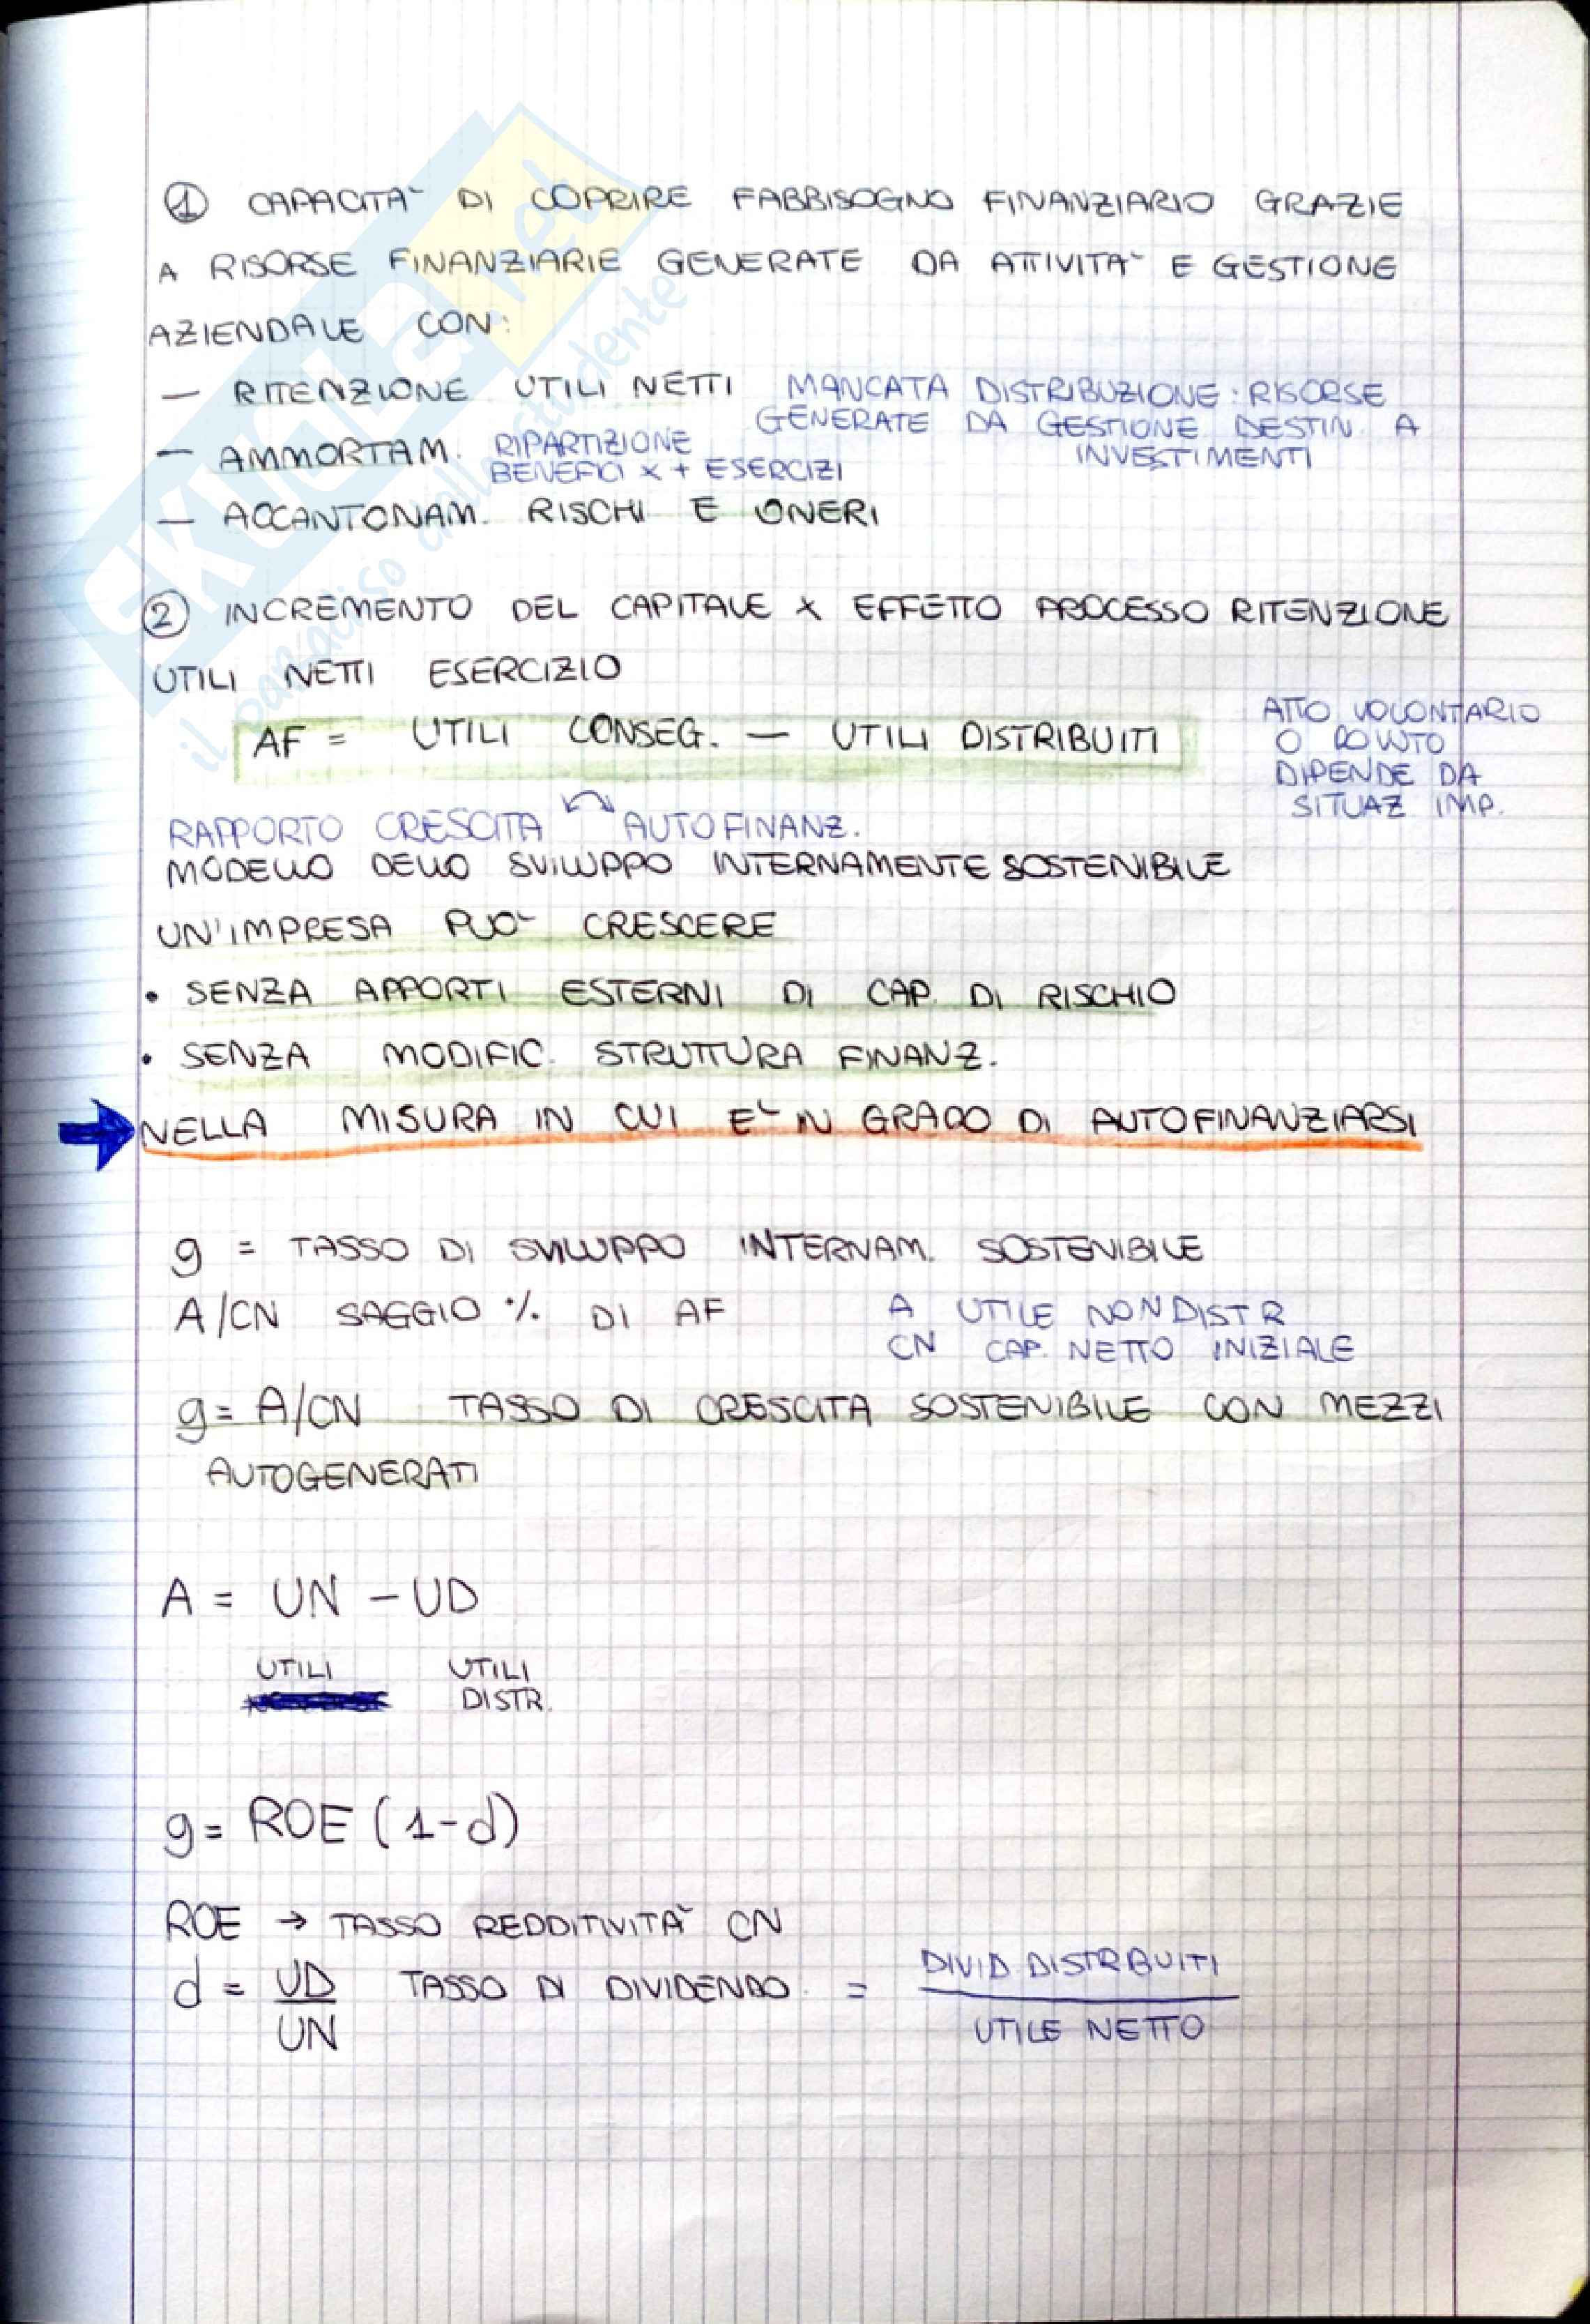 ① CAPACITA` DI COPRIRE FABBISOGNO FINANZIARIO GRAZIE
A RISORSE FINANZIARIE GENERATE DA ATTIVITA` E GESTIONE
AZIENDALE CON:
— RITENZIONE UTILI NETTI MANCATA DISTRIBUZIONE: RISORSE
GENERATE DA GESTIONE DESTIN. A
INVESTIMENTI
— AMMORTAM. RIPARTIZIONE
BENEFICI X + ESERCIZI
— ACCANTONAM. RISCHI E ONERI
② INCREMENTO DEL CAPITALE X EFFETTO PROCESSO RITENZIONE
UTILI NETTI ESERCIZIO
AF = UTILI CONSEG. — UTILI DISTRIBUITI
ATTO VOLONTARIO
O DOVUTO
DIPENDE DA
SITUAZ IMP.
RAPPORTO CRESCITA AUTOFINANZ.
MODELLO DELLO SVILUPPO INTERNAMENTE SOSTENIBILE
UN'IMPRESA PUO` CRESCERE
• SENZA APPORTI ESTERNI DI CAP. DI RISCHIO
• SENZA MODIFIC. STRUTTURA FINANZ.
NELLA MISURA IN CUI E` IN GRADO DI AUTOFINANZIARSI
g = TASSO DI SVILUPPO INTERNAM. SOSTENIBILE
A/CN SAGGIO % DI AF A UTILE NON DISTR
CN CAP. NETTO INIZIALE
g = A/CN TASSO DI CRESCITA SOSTENIBILE CON MEZZI
AUTOGENERATI
A = UN - UD
UTILI UTILI
DISTR.
g = ROE (1-d)
ROE → TASSO REDDITIVITA` CN
d = UD/UN TASSO DI DIVIDENDO = DIVID DISTRIBUITI / UTILE NETTO
SKUOLA.net
il paradiso dello studente